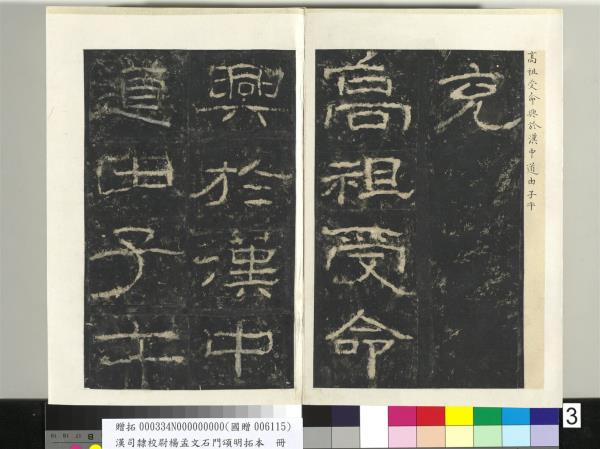 高祖受命興於漢中道由子午
充
高祖受命
興於漢中
道由子午
3
贈拓 000334N000000000(國贈 006115)
漢司隸校尉楊孟文石門頌明拓本 冊
B